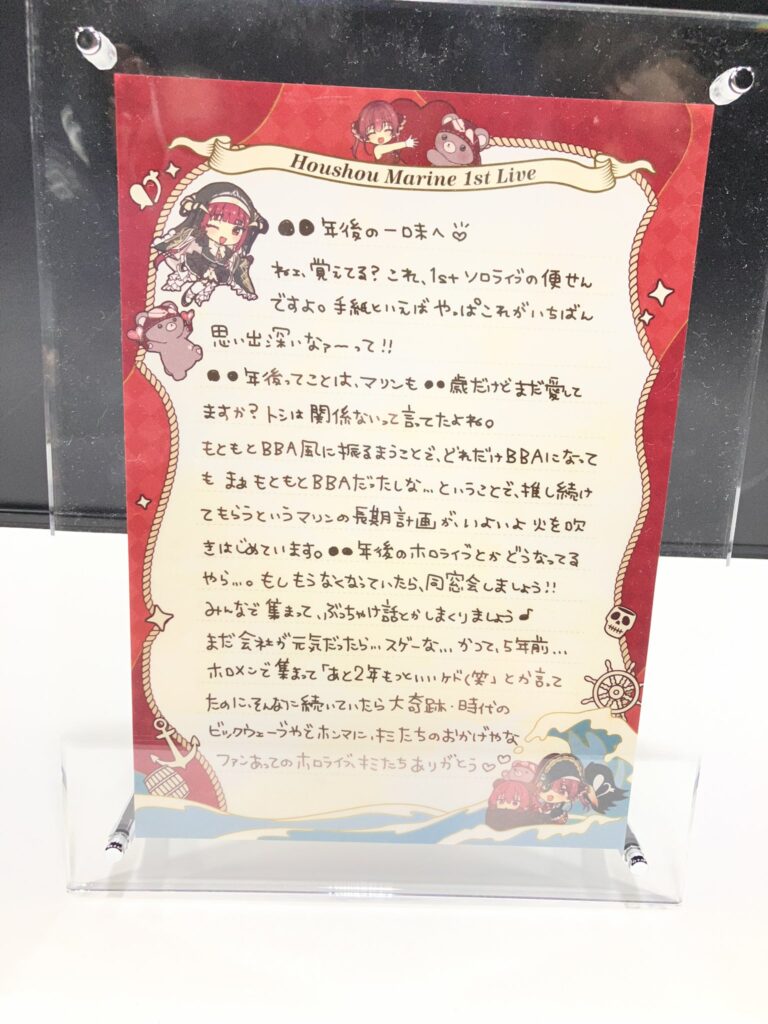 Houshou Marine 1st Live
●●年後の一味へ♡
ねェ、覚えてる?これ、1stソロライブの便せん
ですよ。手紙といえばやっぱこれがいちばん
思い出深いなァーって!!
●●年後ってことは、マリンも●●歳だけどまだ愛して
ますか?トシは関係ないって言ってたよね。
もともとBBA風に振るまうことで、どれだけBBAになって
も まぁもともとBBAだったしな…ということで、推し続け
てもらうというマリンの長期計画が、いよいよ火を吹
きはじめています。●●年後のホロライブとかどうなってる
やら…。もしもうなくなっていたら、同窓会しましょう!!
みんなで集まって、ぶっちゃけ話とかしまくりましょう♪
まだ会社が元気だったら…スゲーな… かつて、5年前…
ホロメンで集まって「あと2年もつといいケド(笑」とか言って
たのに、そんなに続いていたら大奇跡・時代の
ビックウェーブやでホンマに、キミたちのおかげやな
ファンあってのホロライブ、キミたちありがとう♡♡